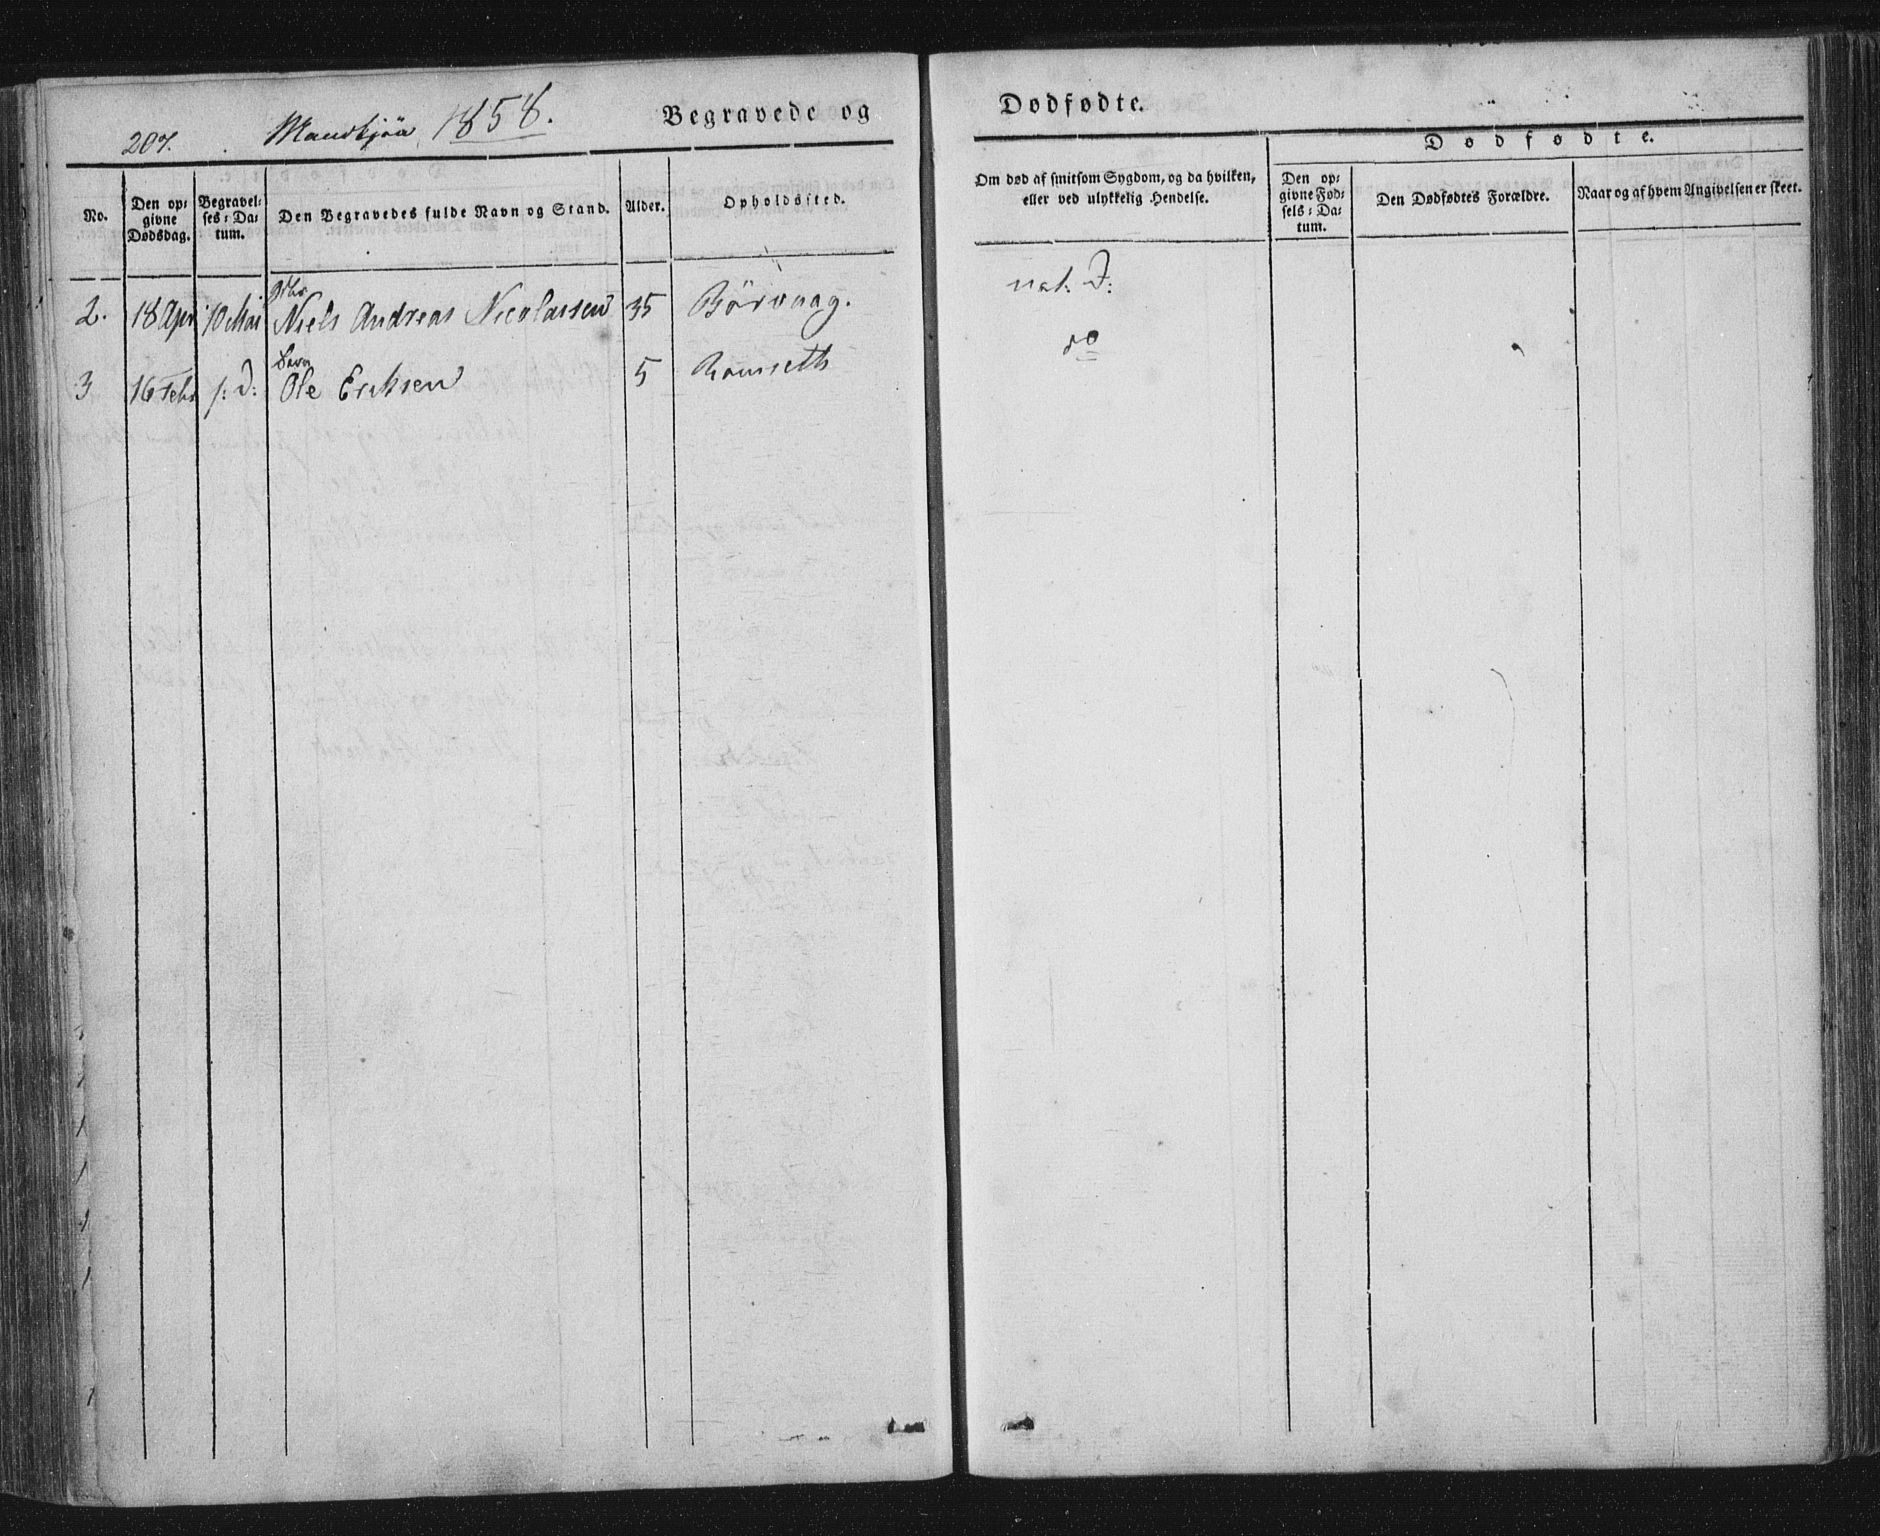 207. Mandkjön 1858. Begravede og Dødfødte.
Dødfødte.
No.
Den op=
givne
Dødsdag.
Begravel=
ses=Da=
tum.
Den Begravedes fulde Navn og Stand.
Alder.
Opholdssted.
Om død af smitsom Sygdom, og da hvilken,
eller ved ulykkelig Hendelse.
Den op=
givne Fød=
sels=Da=
tum.
Den Dødfødtes Forældre.
Naar og af hvem Angivelsen er skeet.
2. 18 Apr 10 Mai Niels Andreas Nicolaisen 35 Börvaag. nat. D:
Barn
3 16 Febr s: D: Ole Eriksen 5 do